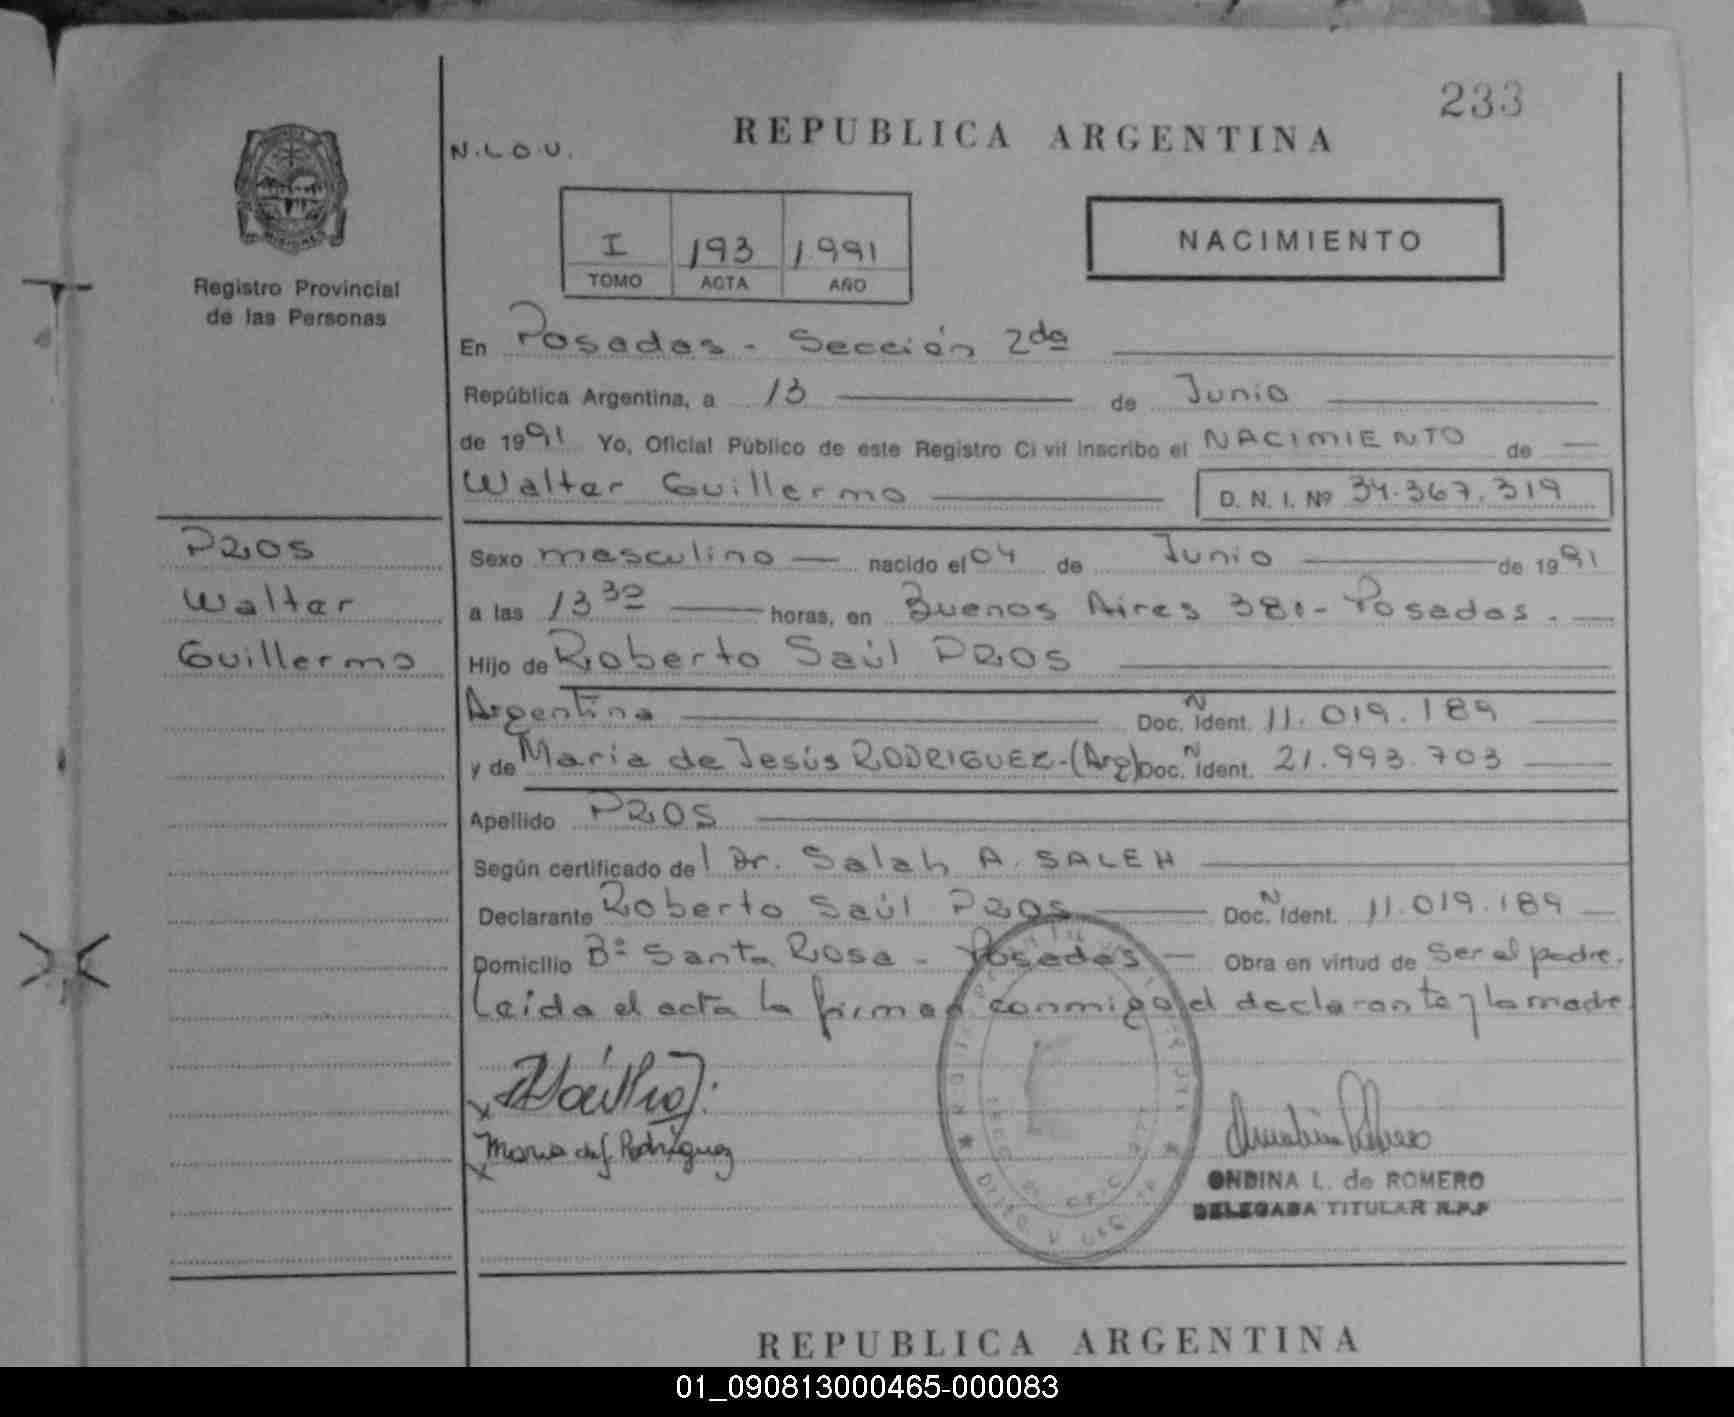 233
REPUBLICA ARGENTINA
N.L.O.U.
I 193 1.991
TOMO ACTA AÑO
NACIMIENTO
Registro Provincial
de las Personas
En Posadas - Sección 2da
República Argentina, a 13 de Junio
de 1991 Yo, Oficial Público de este Registro Civil inscribo el NACIMIENTO de
Walter Guillermo D. N. I. Nº 34.367.319
PROS
Walter
Guillermo
Sexo masculino nacido el 04 de Junio de 1991
a las 13 30 horas, en Buenos Aires 380 - Posadas.
Hijo de Roberto Saúl PROS
Argentina Doc. N Ident. 11.019.189
y de María de Jesús RODRIGUEZ - (Arg) Doc. N Ident. 21.993.703
Apellido PROS
Según certificado del Dr. Salah A. SALEH
Declarante Roberto Saúl PROS Doc. N Ident. 11.019.189
Domicilio Bº Santa Rosa - Posadas Obra en virtud de ser el padre.
Leida el acta la firman conmigo el declarante y la madre
Maria de J Rodríguez
ONDINA L. de ROMERO
DELEGADA TITULAR R.P.P
REPUBLICA ARGENTINA
01_090813000465-000083